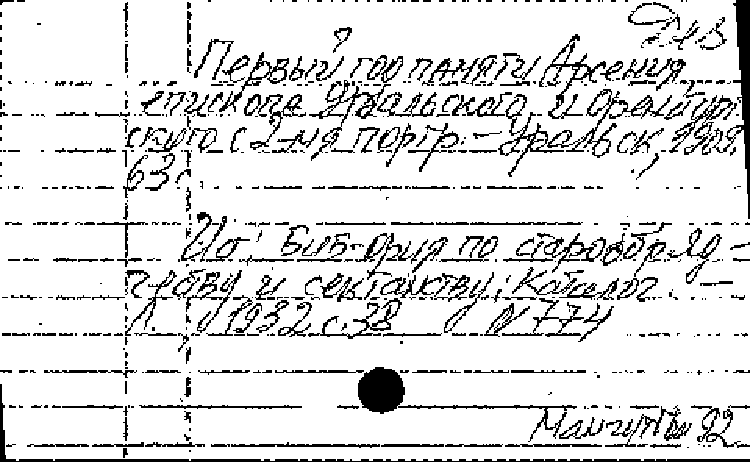 Первый год памяти Арсения,
епископа Уральского и Оренбург
ского с 2-мя портр. - Уральск, 1909.
63с.
Ист: Биб-фия по старообряд-
честву и сектантву: Каталог. -
Л. 1932 с. 38 № 774
92